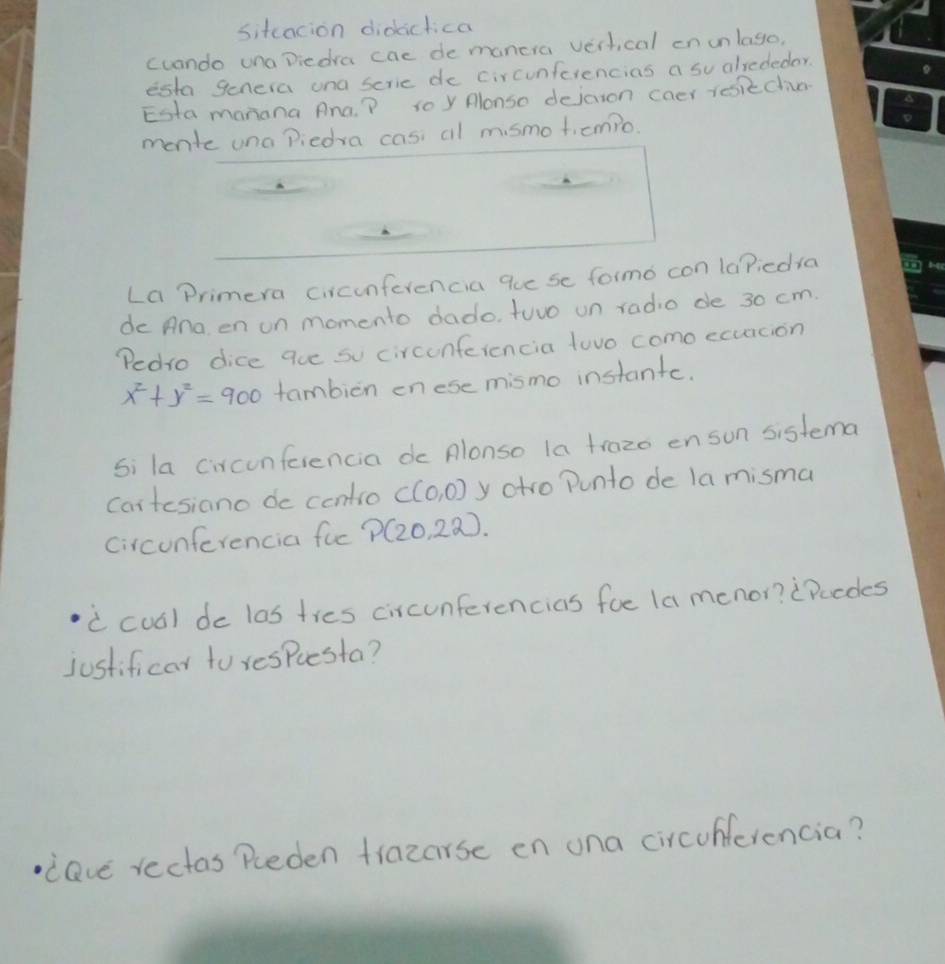 sitcación didáctica
cuando una Piedra cae de manera vertical en un lago,
ésta genera una serie de circunferencias a su alrededor.
Esta mañana Ana. P ro y Alonso dejaron caer respectiva
mente una Piedra casi al mismo tiempo.
La Primera circunferencia que se formó con la Piedra
de Ana, en un momento dado. tuvo un radio de 30 cm.
Pedro dice que su circunferencia tuvo como ecuación
x² + y² = 900 tambien en ese mismo instante.
si la circunferencia de Alonso la trazó en sun sistema
cartesiano de centro C(0,0) y otro Punto de la misma
circunferencia fue P(20,22).
• ¿ cuál de las tres circunferencias fue la menor? ¿Puedes
justificar tu respuesta?
• ¿Qué rectas Pueden trazarse en una circunferencia?